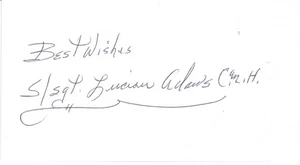 Best Wishes
S/sgt. Lucian Adams C.M.H.